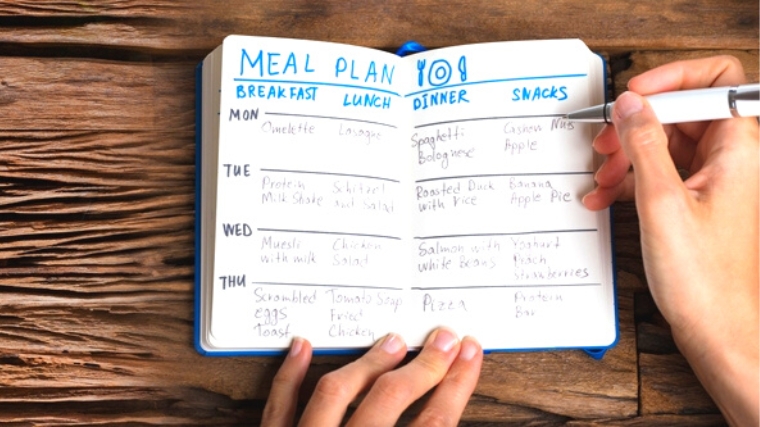 MEAL PLAN
BREAKFAST
LUNCH
DINNER
SNACKS
MON
Omelette
Lasagne
Spaghetti
Bolognese
Cashew Nuts
Apple
TUE
Protein
Milk Shake
Schitzel
and Salad
Roasted Duck
with Rice
Banana
Apple Pie
WED
Muesli
with milk
Chicken
Salad
Salmon with
White Beans
Yoghurt
Peach
Strawberries
THU
Scrambled
eggs
Toast
Tomato Soap
Fried
Chicken
Pizza
Protein
Bar